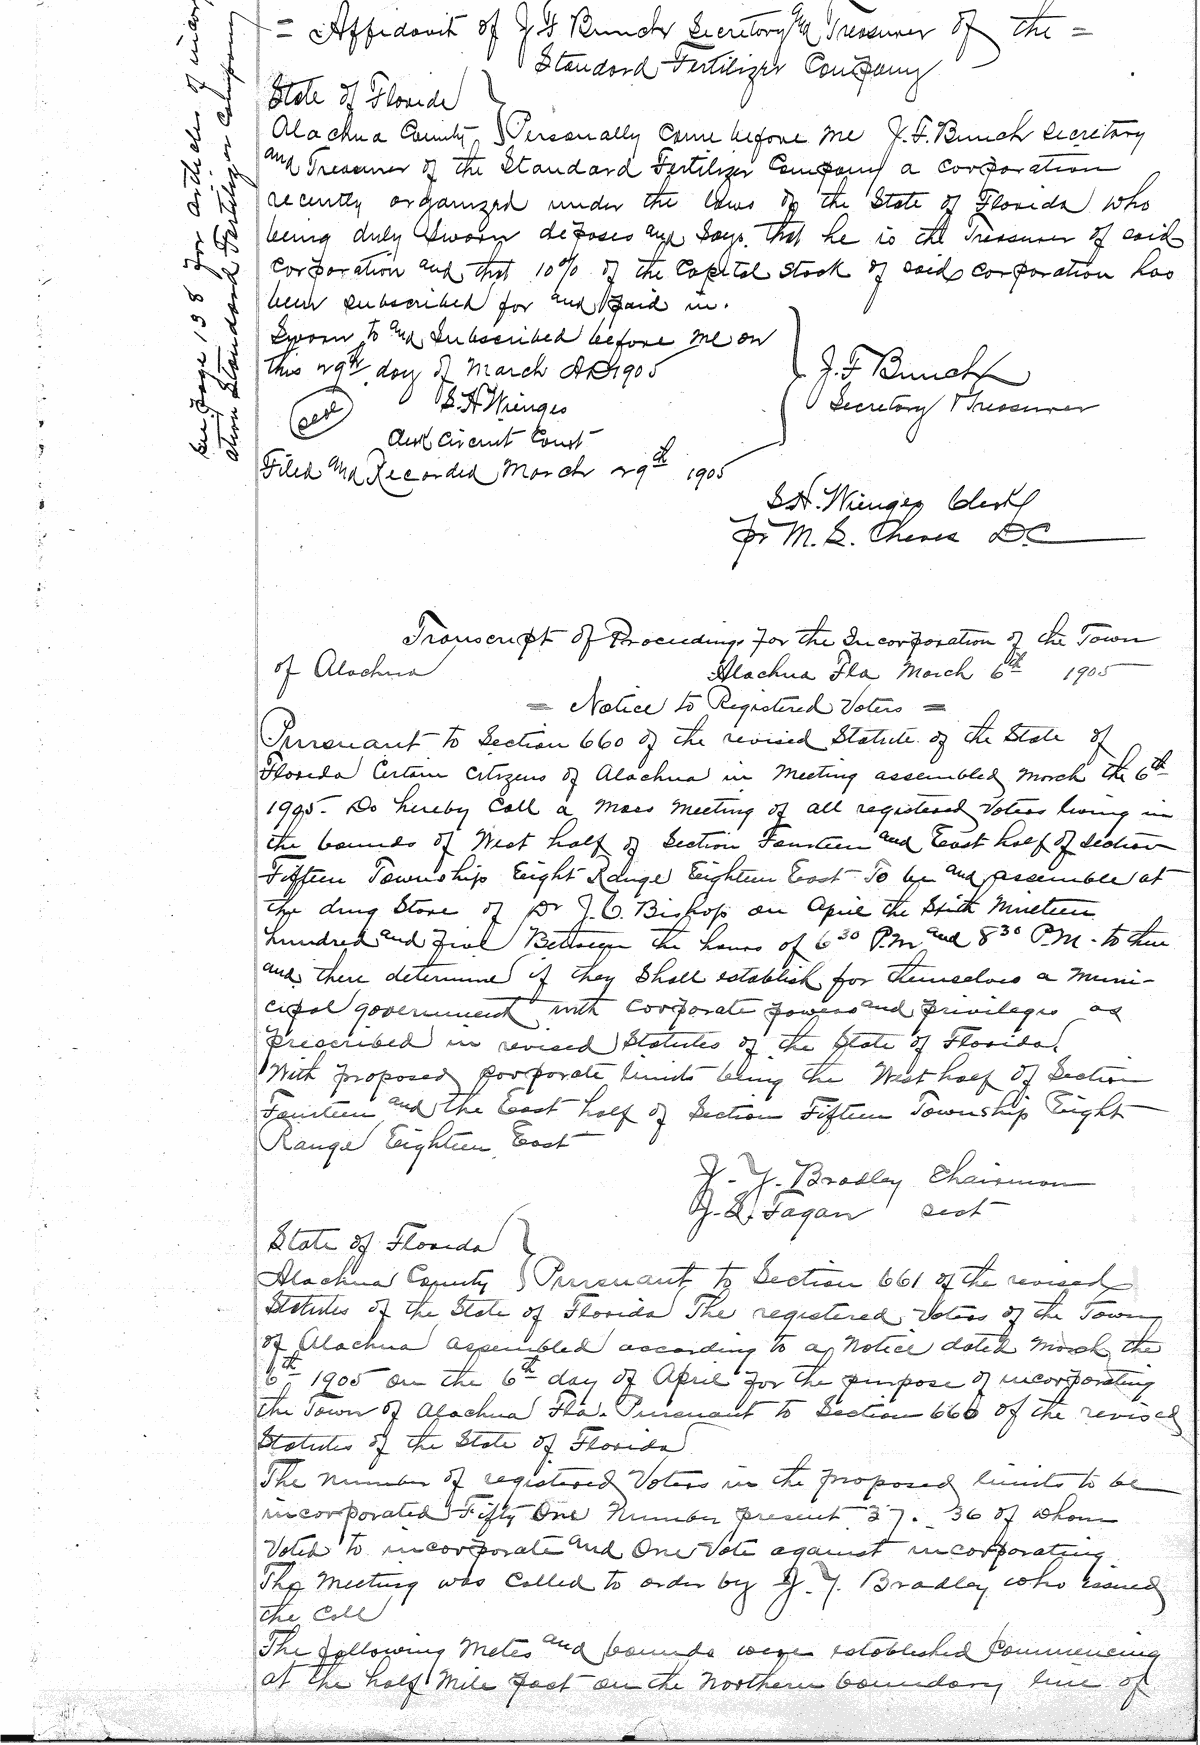 = Affidavit of J F Bunch Secretary and Treasurer of the =
Standard Fertilizer Company
State of Florida
Alachua County } Personally came before me J. F. Bunch Secretary
and Treasurer of the Standard Fertilizer Company a corporation
recently organized under the laws of the State of Florida who
being duly Sworn deposes and Says, that he is the Treasurer of said
corporation and that 10% of the Capital Stock of said corporation has
been subscribed for and paid in.
Sworn to and Subscribed before me on
this 29th day of March AD 1905
J. F. Bunch
Secretary & Treasurer
seal
S. H. Wienges
Clerk Circuit Court
Filed and Recorded March 29th 1905
S. H. Wienges Clerk
pr M. S. Cheves D.C
See page 138 for articles of incorp
ation Standard Fertilizer Company
Transcript of Proceedings for the Incorporation of the Town
of Alachua Alachua Fla March 6th 1905
= Notice to Registered Voters =
Pursuant to Section 660 of the revised Statute of the State of
Florida Certain citizens of Alachua in Meeting assembled March the 6th
1905. Do hereby Call a Mass Meeting of all registered Voters living in
the bounds of West half of Section Fourteen and East half of Section
Fifteen Township Eight Range Eighteen East To be and assemble at
the drug Store of Dr J. C. Bishop on April the Sixth Nineteen
hundred and five Between the hours of 6 30 P.M and 8 30 P.M. to then
and there determine if they Shall establish for themselves a Muni-
cipal government with corporate powers and privileges as
prescribed in revised Statutes of the State of Florida.
With proposed corporate limits being the West half of Section
Fourteen and the East half of Section Fifteen Township Eight
Range Eighteen East
J. Y. Bradley Chairman
J. S. Fagan sect
State of Florida
Alachua County } Pursuant to Section 661 of the revised
Statutes of the State of Florida The registered Voters of the Town
of Alachua assembled according to a Notice dated March the
6th 1905 on the 6th day of April for the purpose of incorporating
the Town of Alachua Fla. Pursuant to Section 660 of the revised
Statutes of the State of Florida
The number of registered Voters in the proposed limits to be
incorporated Fifty One Number present 37. 36 of whom
Voted to incorporate and One Vote against incorporating.
The Meeting was Called to order by J. Y. Bradley who issued
the Call
The following Metes and bounds were established Commencing
at the half Mile post on the Northern boundary line of